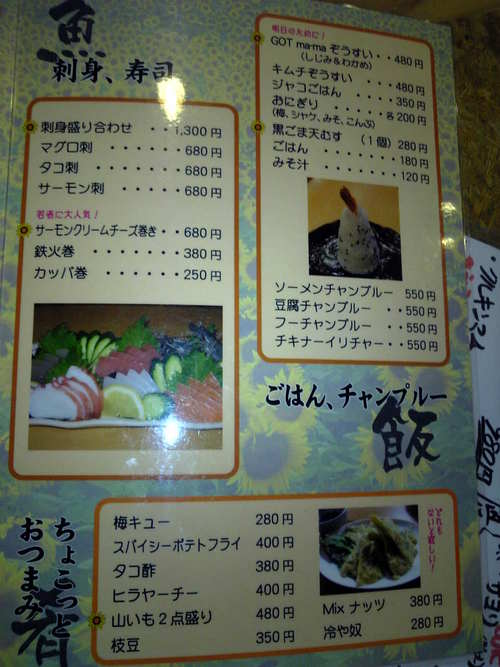 魚
刺身、寿司
刺身盛り合わせ ・・1,300円
マグロ刺 ・・・・・・・680円
タコ刺 ・・・・・・・680円
サーモン刺 ・・・・・・680円
若者に大人気！
サーモンクリームチーズ巻き・・680円
鉄火巻 ・・・・・・・380円
カッパ巻 ・・・・・・・250円
明日のために！
GOT ma-ma ぞうすい・・480円
（しじみ＆わかめ）
キムチぞうすい ・・・480円
ジャコごはん ・・・・350円
おにぎり ・・・・・各200円
（梅、シャケ、みそ、こんぶ）
黒ごま天むす （1個）280円
ごはん ・・・・・・・180円
みそ汁 ・・・・・・・120円
ソーメンチャンプルー 550円
豆腐チャンプルー ・・550円
フーチャンプルー ・・550円
チキナーイリチャー・・550円
ごはん、チャンプルー
飯
ちょこっと
おつまみ
肴
梅キュー 280円
スパイシーポテトフライ 400円
タコ酢 380円
ヒラヤーチー 400円
山いも2点盛り 480円
枝豆 350円
Mix ナッツ 380円
冷や奴 280円